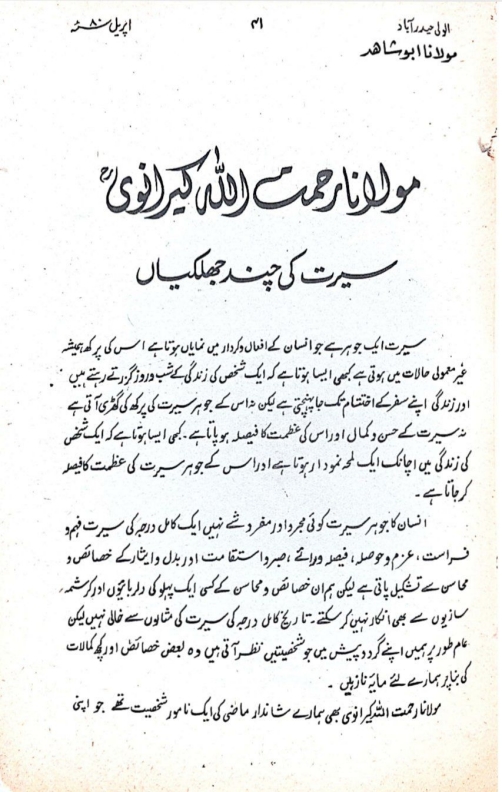 الولی حیدرآباد ۴۱ اپریل ۸۰ء
مولانا ابو شاھد
مولانا رحمت اللہ کیرانویؒ
سیرت کی چند جھلکیاں
سیرت ایک جوہر ہے جو انسان کے افعال و کردار میں نمایاں ہوتا ہے اس کی پرکھ ہمیشہ
غیر معمولی حالات میں ہوتی ہے کبھی ایسا ہوتا ہے کہ ایک شخص کی زندگی کے شب و روز گزرتے رہتے ہیں
اور زندگی اپنے سفر کے اختتام تک جا پہنچتی ہے لیکن نہ اس کے جوہر سیرت کی پرکھ کی گھڑی آتی ہے
نہ سیرت کے حسن و کمال اور اس کی عظمت کا فیصلہ ہو پاتا ہے۔ کبھی ایسا ہوتا ہے کہ ایک شخص
کی زندگی میں اچانک ایک لمحہ نمودار ہوتا ہے اور اس کے جوہر سیرت کی عظمت کا فیصلہ
کر جاتا ہے۔
انسان کا جوہر سیرت کوئی مجرد اور مفرد شے نہیں ایک کامل درجہ کی سیرت فہم و
فراست، عزم و حوصلہ، فیصلہ و رائے، صبر و استقامت اور بدل و ایثار کے خصائص و
محاسن سے تشکیل پاتی ہے لیکن ہم ان خصائص و محاسن کے کسی ایک پہلو کی دلربائیوں اور کرشمہ
سازیوں سے بھی انکار نہیں کر سکتے۔ تاریخ کامل درجہ کی سیرت کی مثالوں سے خالی نہیں لیکن
عام طور پر ہمیں اپنے گرد و پیش میں جو شخصیتیں نظر آتی ہیں وہ بعض خصائص اور کچھ کمالات
کی بنا پر ہمارے لئے مایۂ ناز ہیں۔
مولانا رحمت اللہ کیرانوی بھی ہمارے شاندار ماضی کی ایک نامور شخصیت تھے جو اپنی